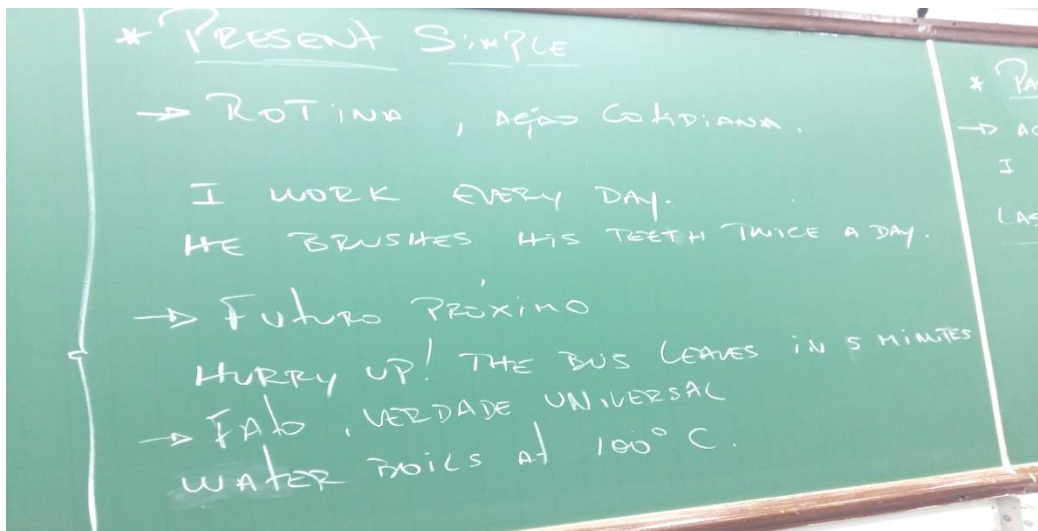 * PRESENT SIMPLE
→ ROTINA, AÇÃO COTIDIANA.
I WORK EVERY DAY.
HE BRUSHES HIS TEETH TWICE A DAY.
→ FUTURO PRÓXIMO
HURRY UP! THE BUS LEAVES IN 5 MINUTES
→ FATO, VERDADE UNIVERSAL
WATER BOILS AT 100° C.
* PA
→ AC
I
LAS